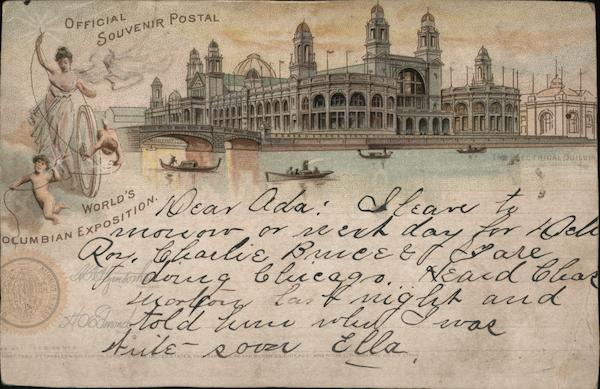 OFFICIAL
SOUVENIR POSTAL
WORLD'S
COLUMBIAN EXPOSITION.
THE ELECTRICAL BUILDING
Dear Ada: I leave to
morrow or next day for
Roy, Charlie Bruce & I are
doing Chicago. Heard Chas
Morton last night and
told him who I was
Write soon Ella.